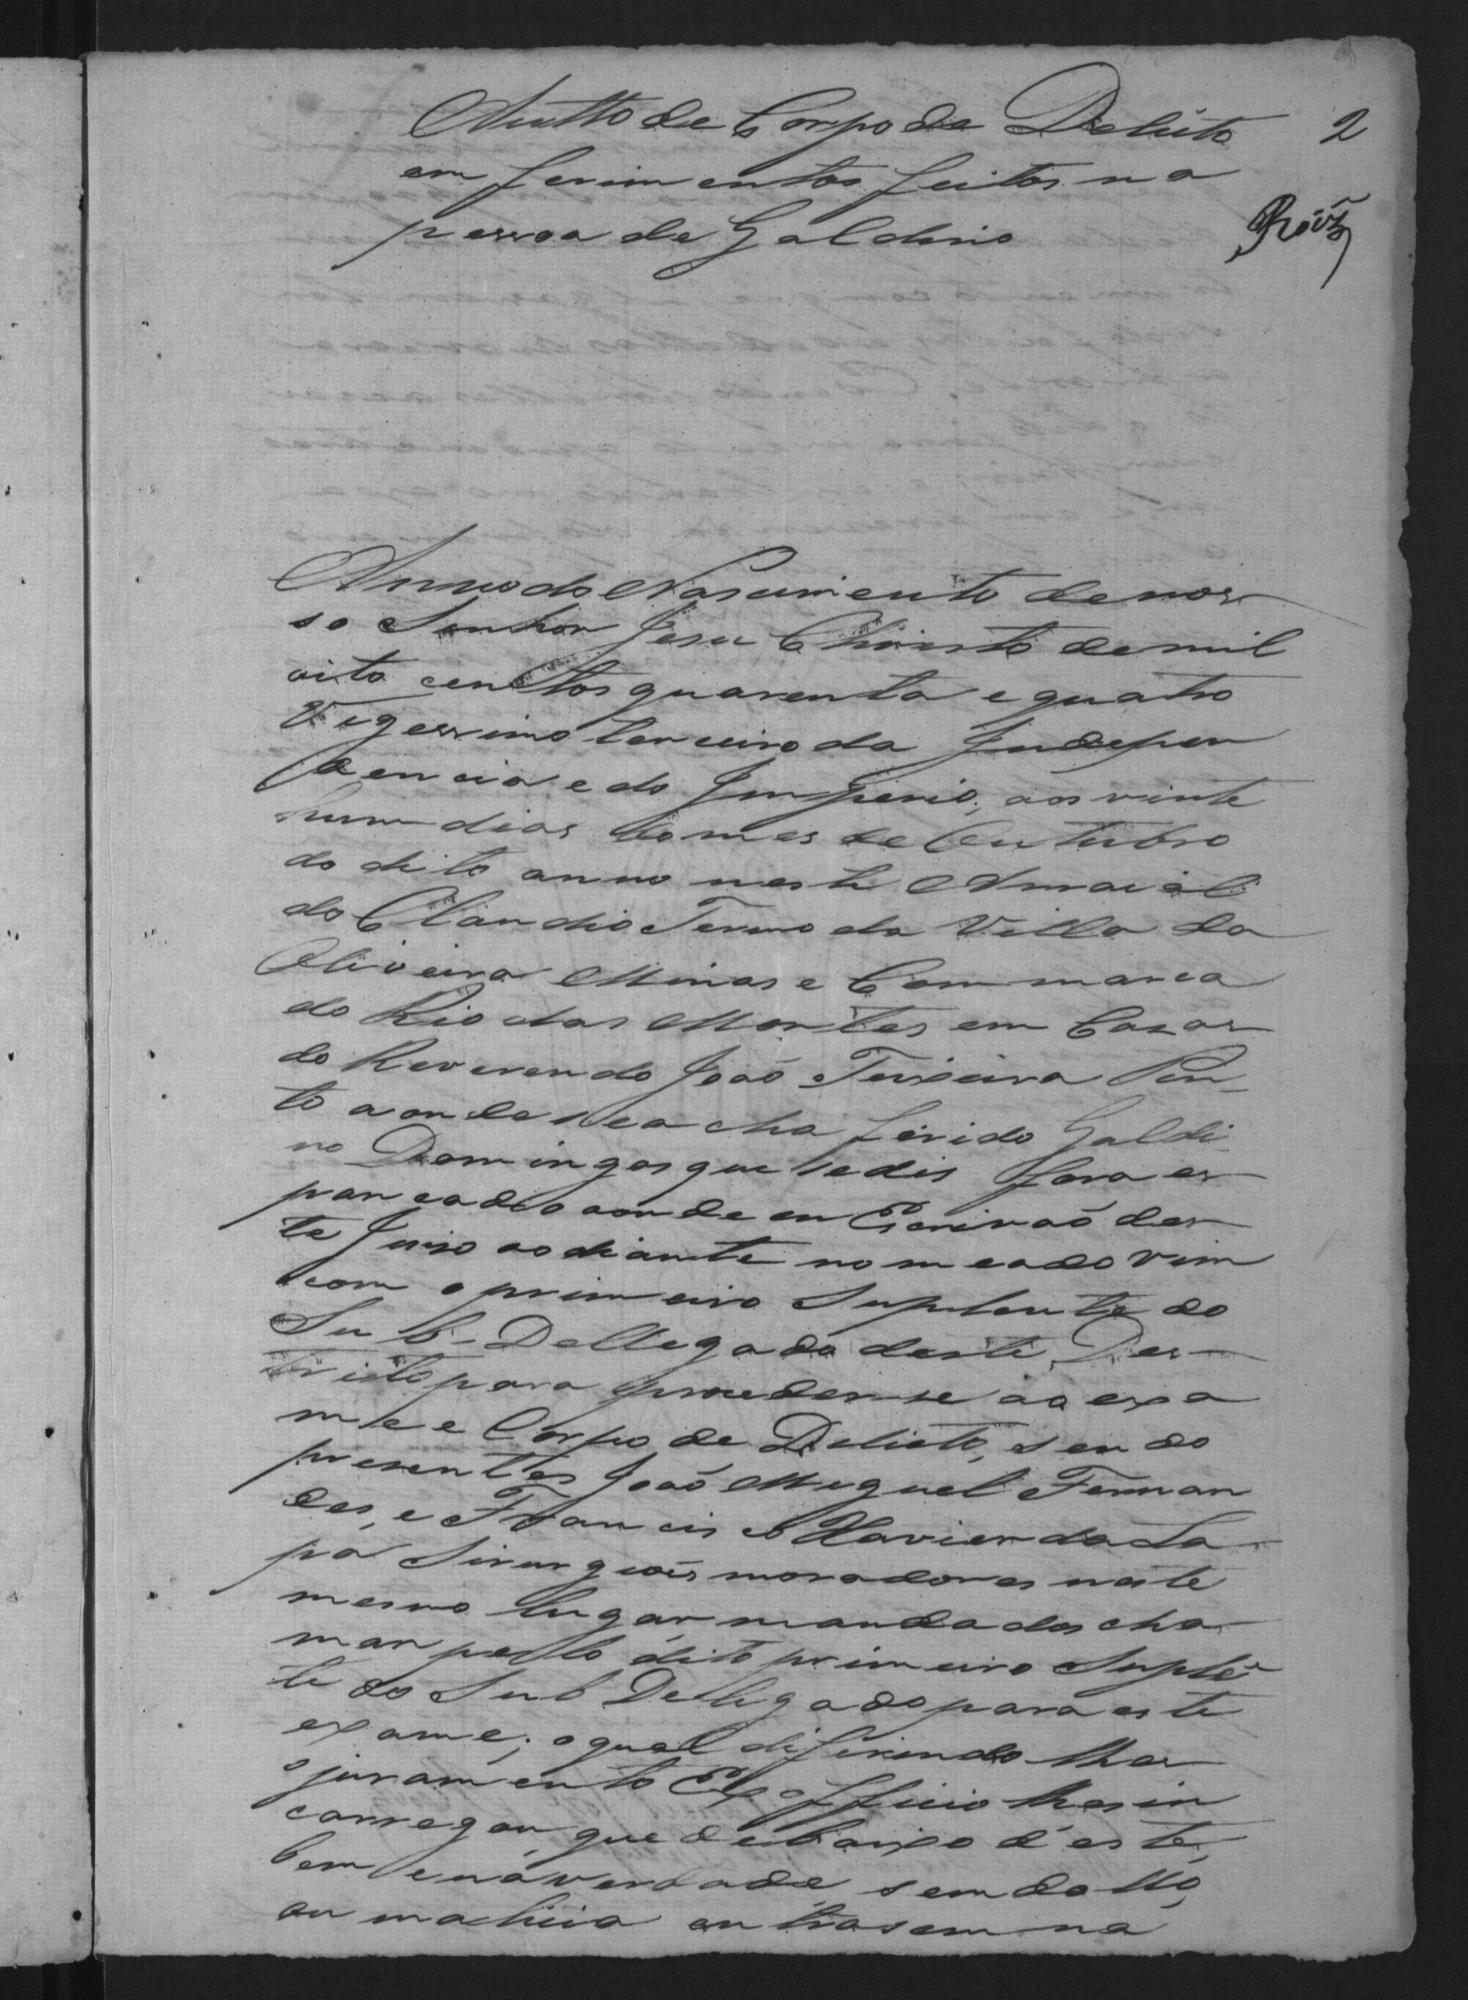 Autto de Corpo de Delicto
em ferimentos feitos na
pessoa de Galdino
2
Anno do Nascimento de nos
so Senhor Jesu Christo de mil
oito centos quarenta e quatro
Vigessimo terceiro da Indepen
dencia e do Imperio, aos vinte
hum dias do mes de Outubro
do dito anno neste Arraial
do Claudio Termo da Villa da
Oliveira Minas e Commarca
do Rio das Mortes em Casas
do Reverendo João Teixeira Pin
to aonde se acha ferido Galdi
no Domingos que se dis fora es
pancado aonde eu Escrivaõ des
te Juiso ao diante nomeado vim
com o primeiro Suplente do
Sub Dellegado deste Des
tricto para proceder-se ao exa
me e Corpo de Delicto, sendo
presentes João Miguel Fernan
des, e Francisco Xavier da La
pa Sirurgioẽs moradores neste
mesmo lugar mandados cha
mar pello dito primeiro Suplẽ
te do Sub Dellegado para este
exame; o qual difirindo lhes
o juramento Ex officio lhes in
carregou que debaixo d'este,
bem e na verdade, sem dollo,
ou malicia en trasem na